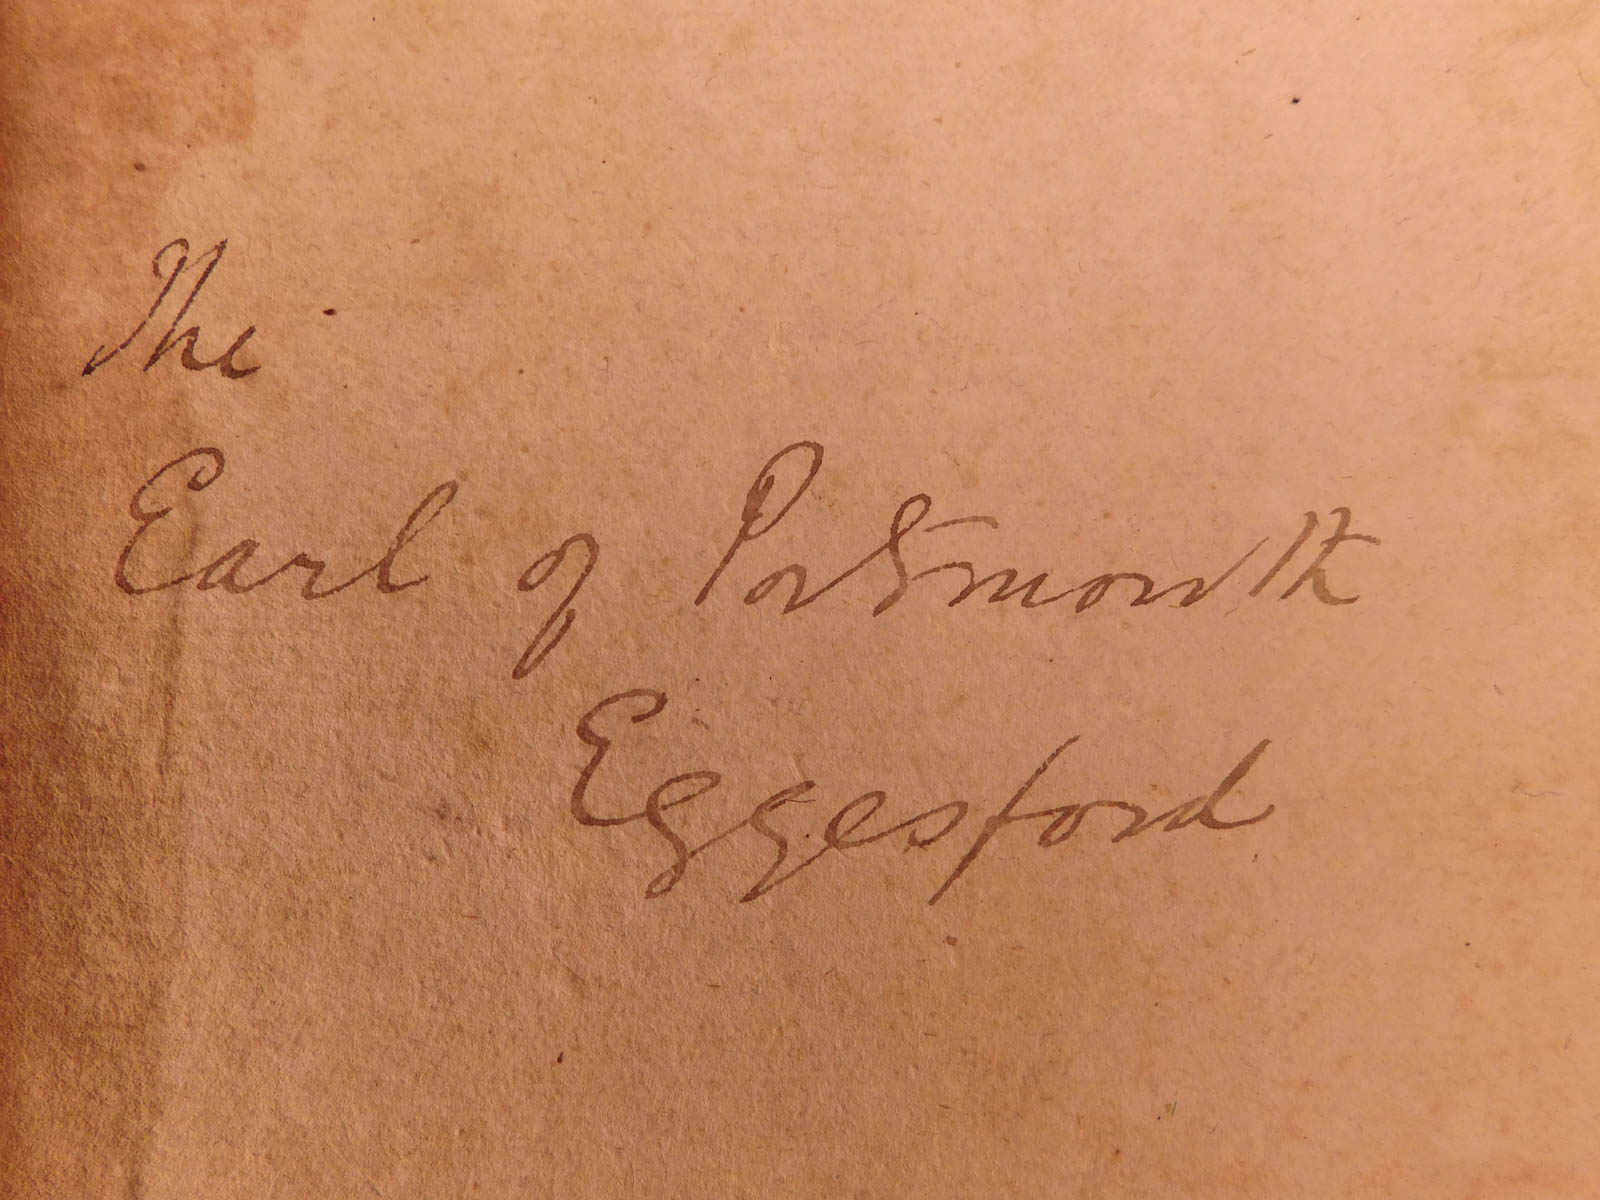 The
Earl of Portsmouth
Eggesford